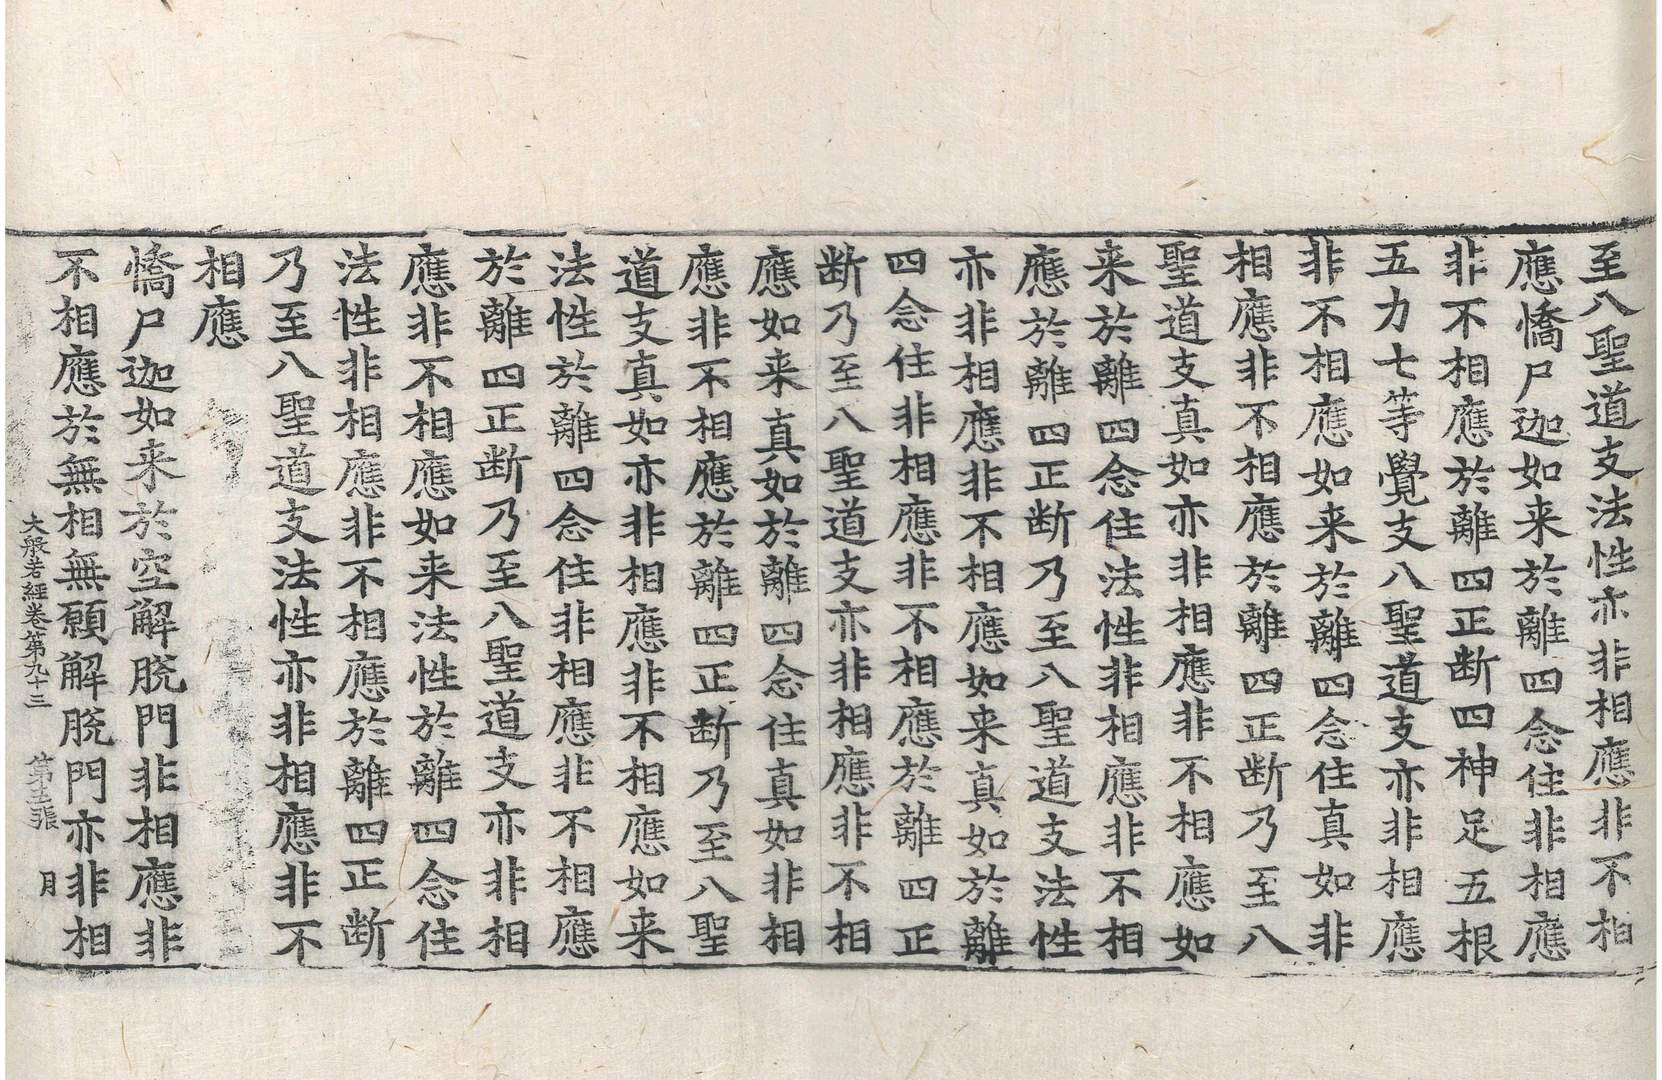 至八聖道支法性亦非相應非不相
應憍尸迦如来於離四念住非相應
非不相應於離四正断四神足五根
五力七等覺支八聖道支亦非相應
非不相應如来於離四念住真如非
相應非不相應於離四正断乃至八
聖道支真如亦非相應非不相應如
来於離四念住法性非相應非不相
應於離四正断乃至八聖道支法性
亦非相應非不相應如来真如於離
四念住非相應非不相應於離四正
断乃至八聖道支亦非相應非不相
應如来真如於離四念住真如非相
應非不相應於離四正断乃至八聖
道支真如亦非相應非不相應如来
法性於離四念住非相應非不相應
於離四正断乃至八聖道支亦非相
應非不相應如来法性於離四念住
法性非相應非不相應於離四正断
乃至八聖道支法性亦非相應非不
相應
憍尸迦如来於空解脱門非相應非
不相應於無相無願解脱門亦非相
大般若經卷第九十三 第 張 月